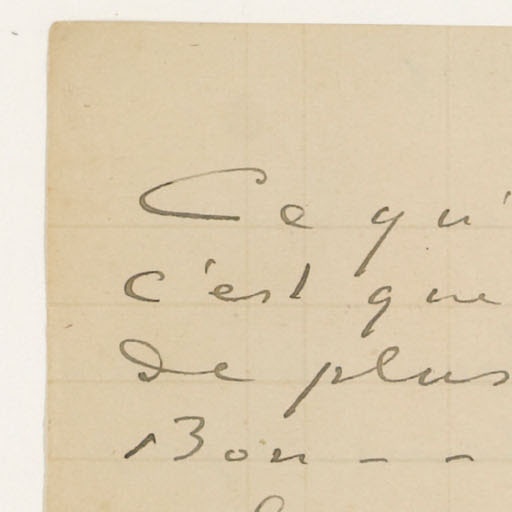 Ce qu'
c'est que
De plus
Bon - -